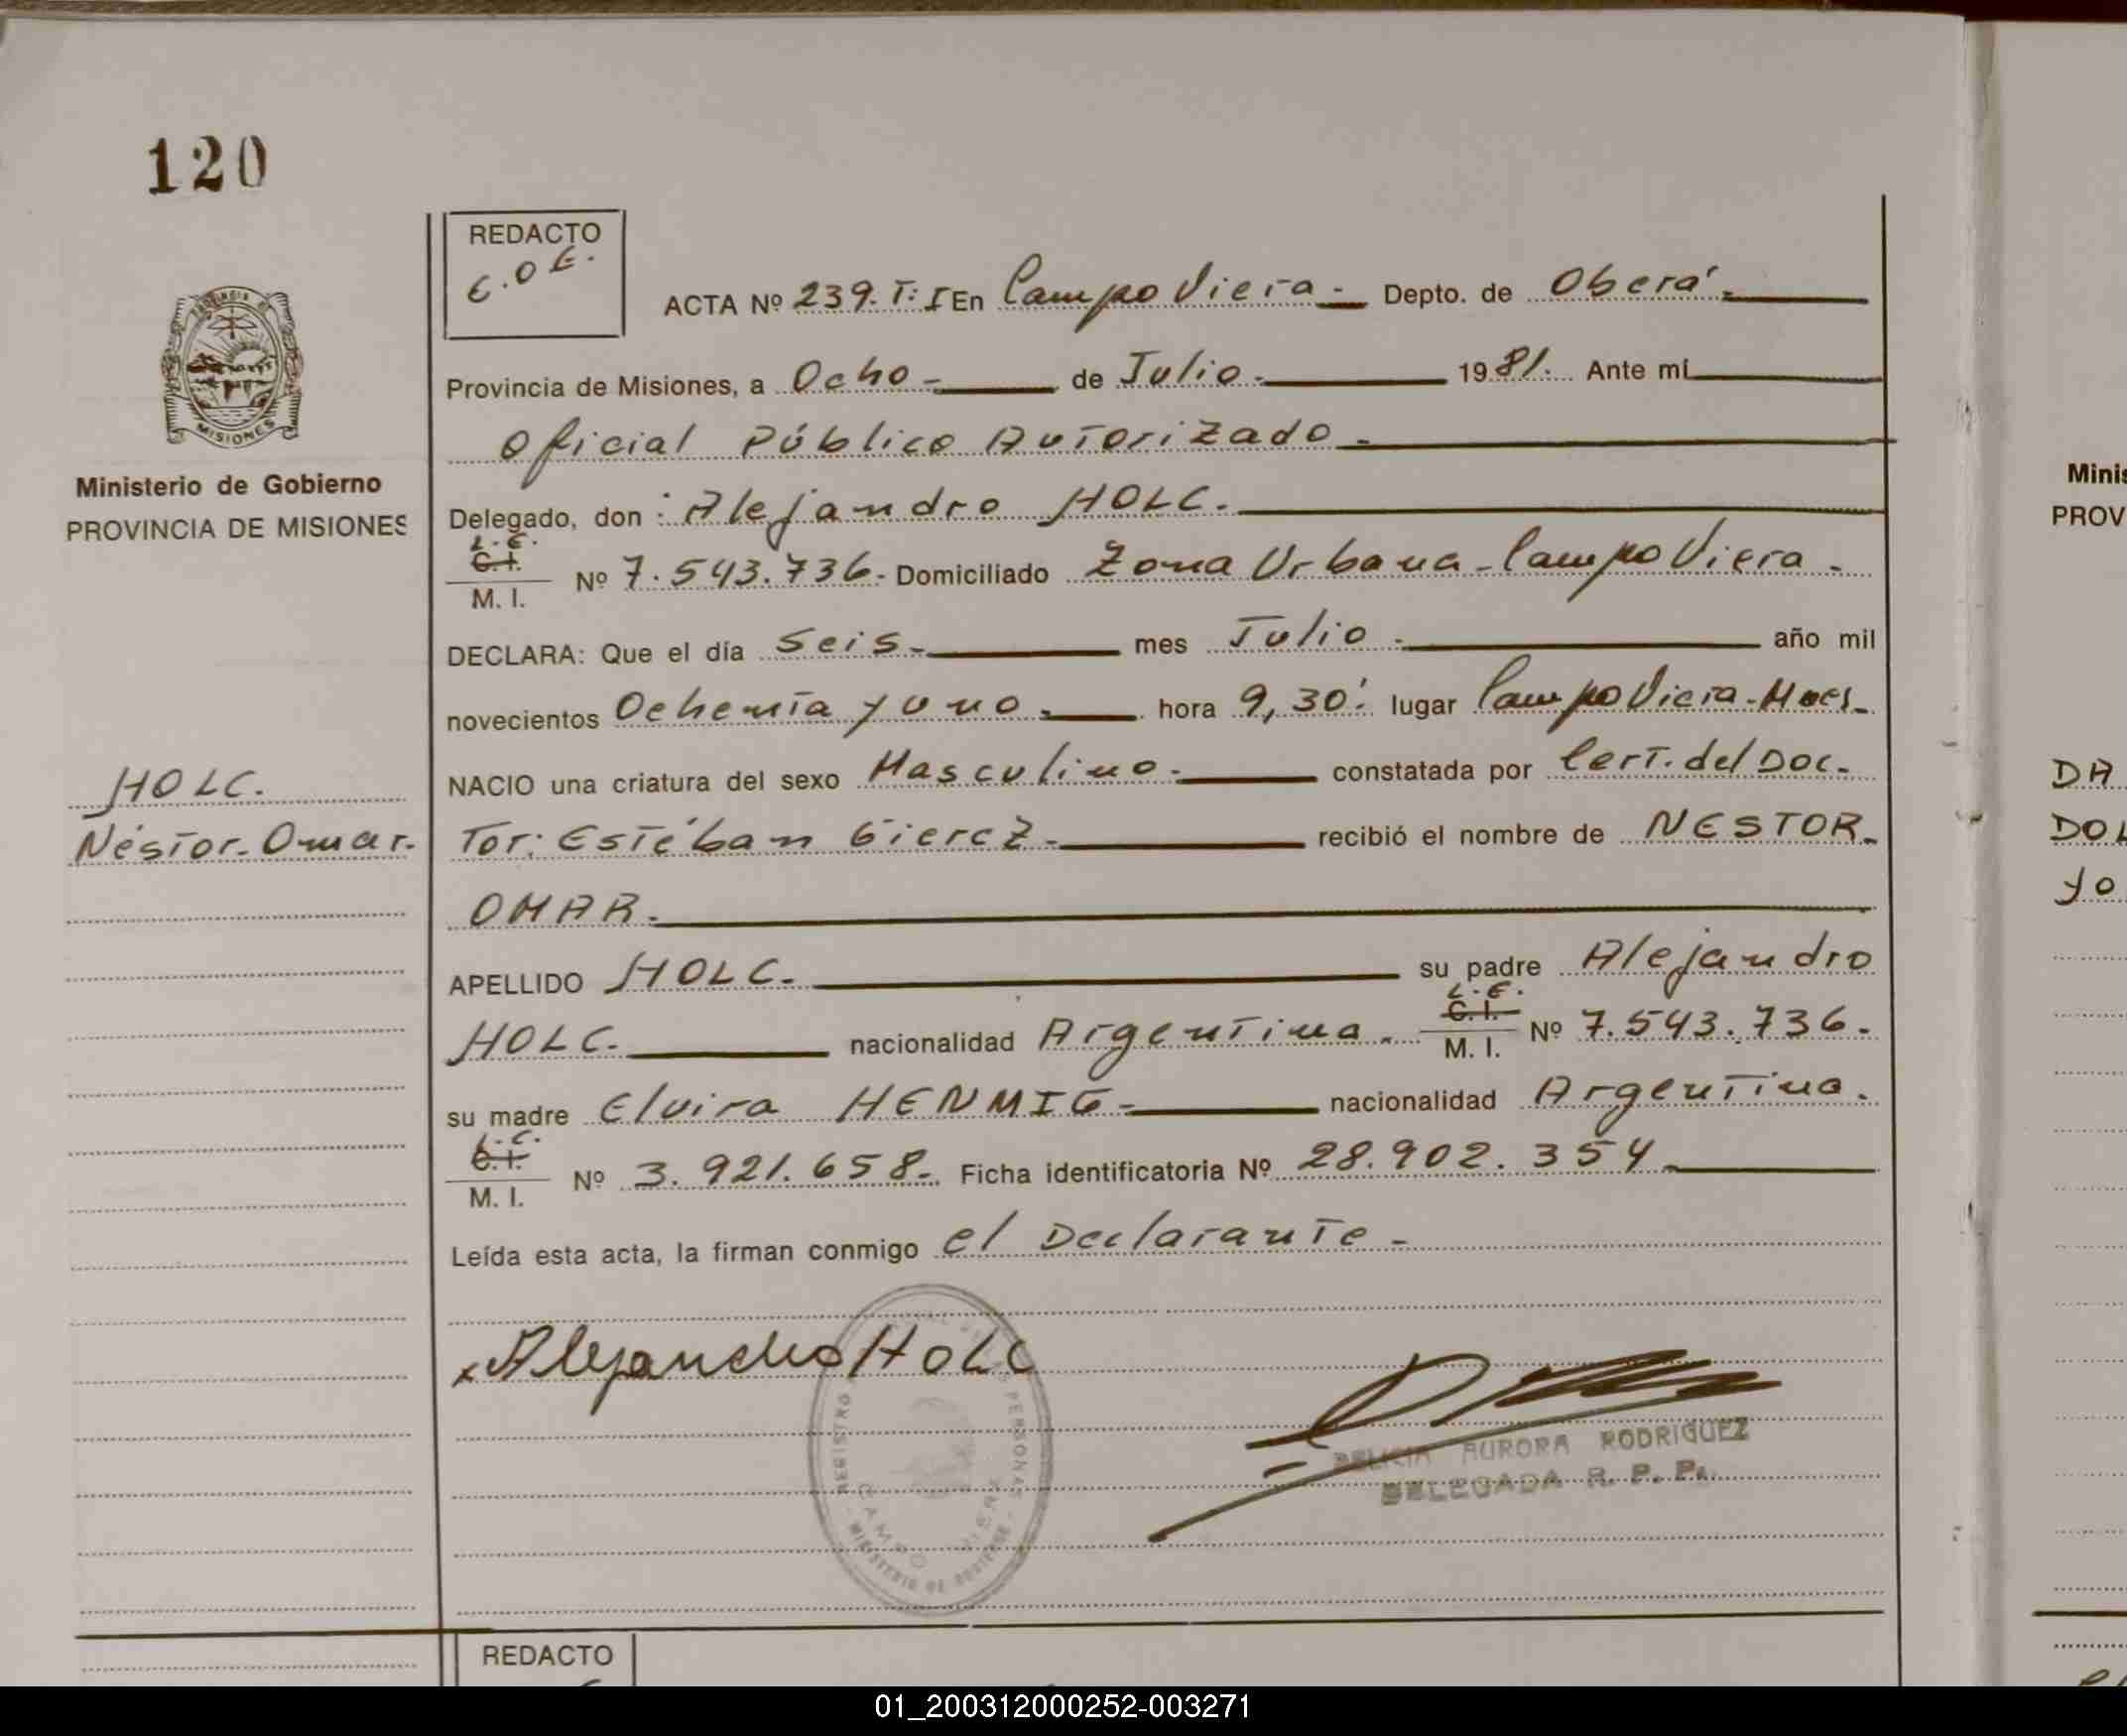 120
REDACTO
C.O.E.
ACTA Nº 239. T: I En Campo Viera.- Depto. de Oberá.-
Provincia de Misiones, a Ocho.- de Julio.- 1981. Ante mí
Oficial Público Autorizado.-
MISIONES
Ministerio de Gobierno
PROVINCIA DE MISIONES
Delegado, don : Alejandro HOLC.
L.E.
C.I.
M. I. Nº 7.543.736.- Domiciliado Zona Urbana - Campo Viera.-
DECLARA: Que el día Seis.- mes Julio.- año mil
novecientos Ochenta y uno.- hora 9,30'. lugar Campo Viera - Mnes.-
NACIO una criatura del sexo Masculino.- constatada por Cert. del Doc-
HOLC.
Néstor-Omar.
tor: Estéban Gierez.- recibió el nombre de NESTOR-
OMAR.
APELLIDO HOLC.- su padre Alejandro
HOLC.- nacionalidad Argentina.- L.E. C.I. M. I. Nº 7.543.736.-
su madre Elvira HENMIG.- nacionalidad Argentina.
L.C.
C.I.
M. I. Nº 3.921.658.- Ficha identificatoria Nº 28.902.354.-
Leída esta acta, la firman conmigo el Declarante.-
x Alejandro HOLC
REGISTRO PERSONAS
CAMPO VIERA
MINISTERIO DE GOBIERNO
AURORA RODRIGUEZ
DELEGADA R. P. P.
REDACTO
Minis
PROV
DA
DOL
yo
01_200312000252-003271